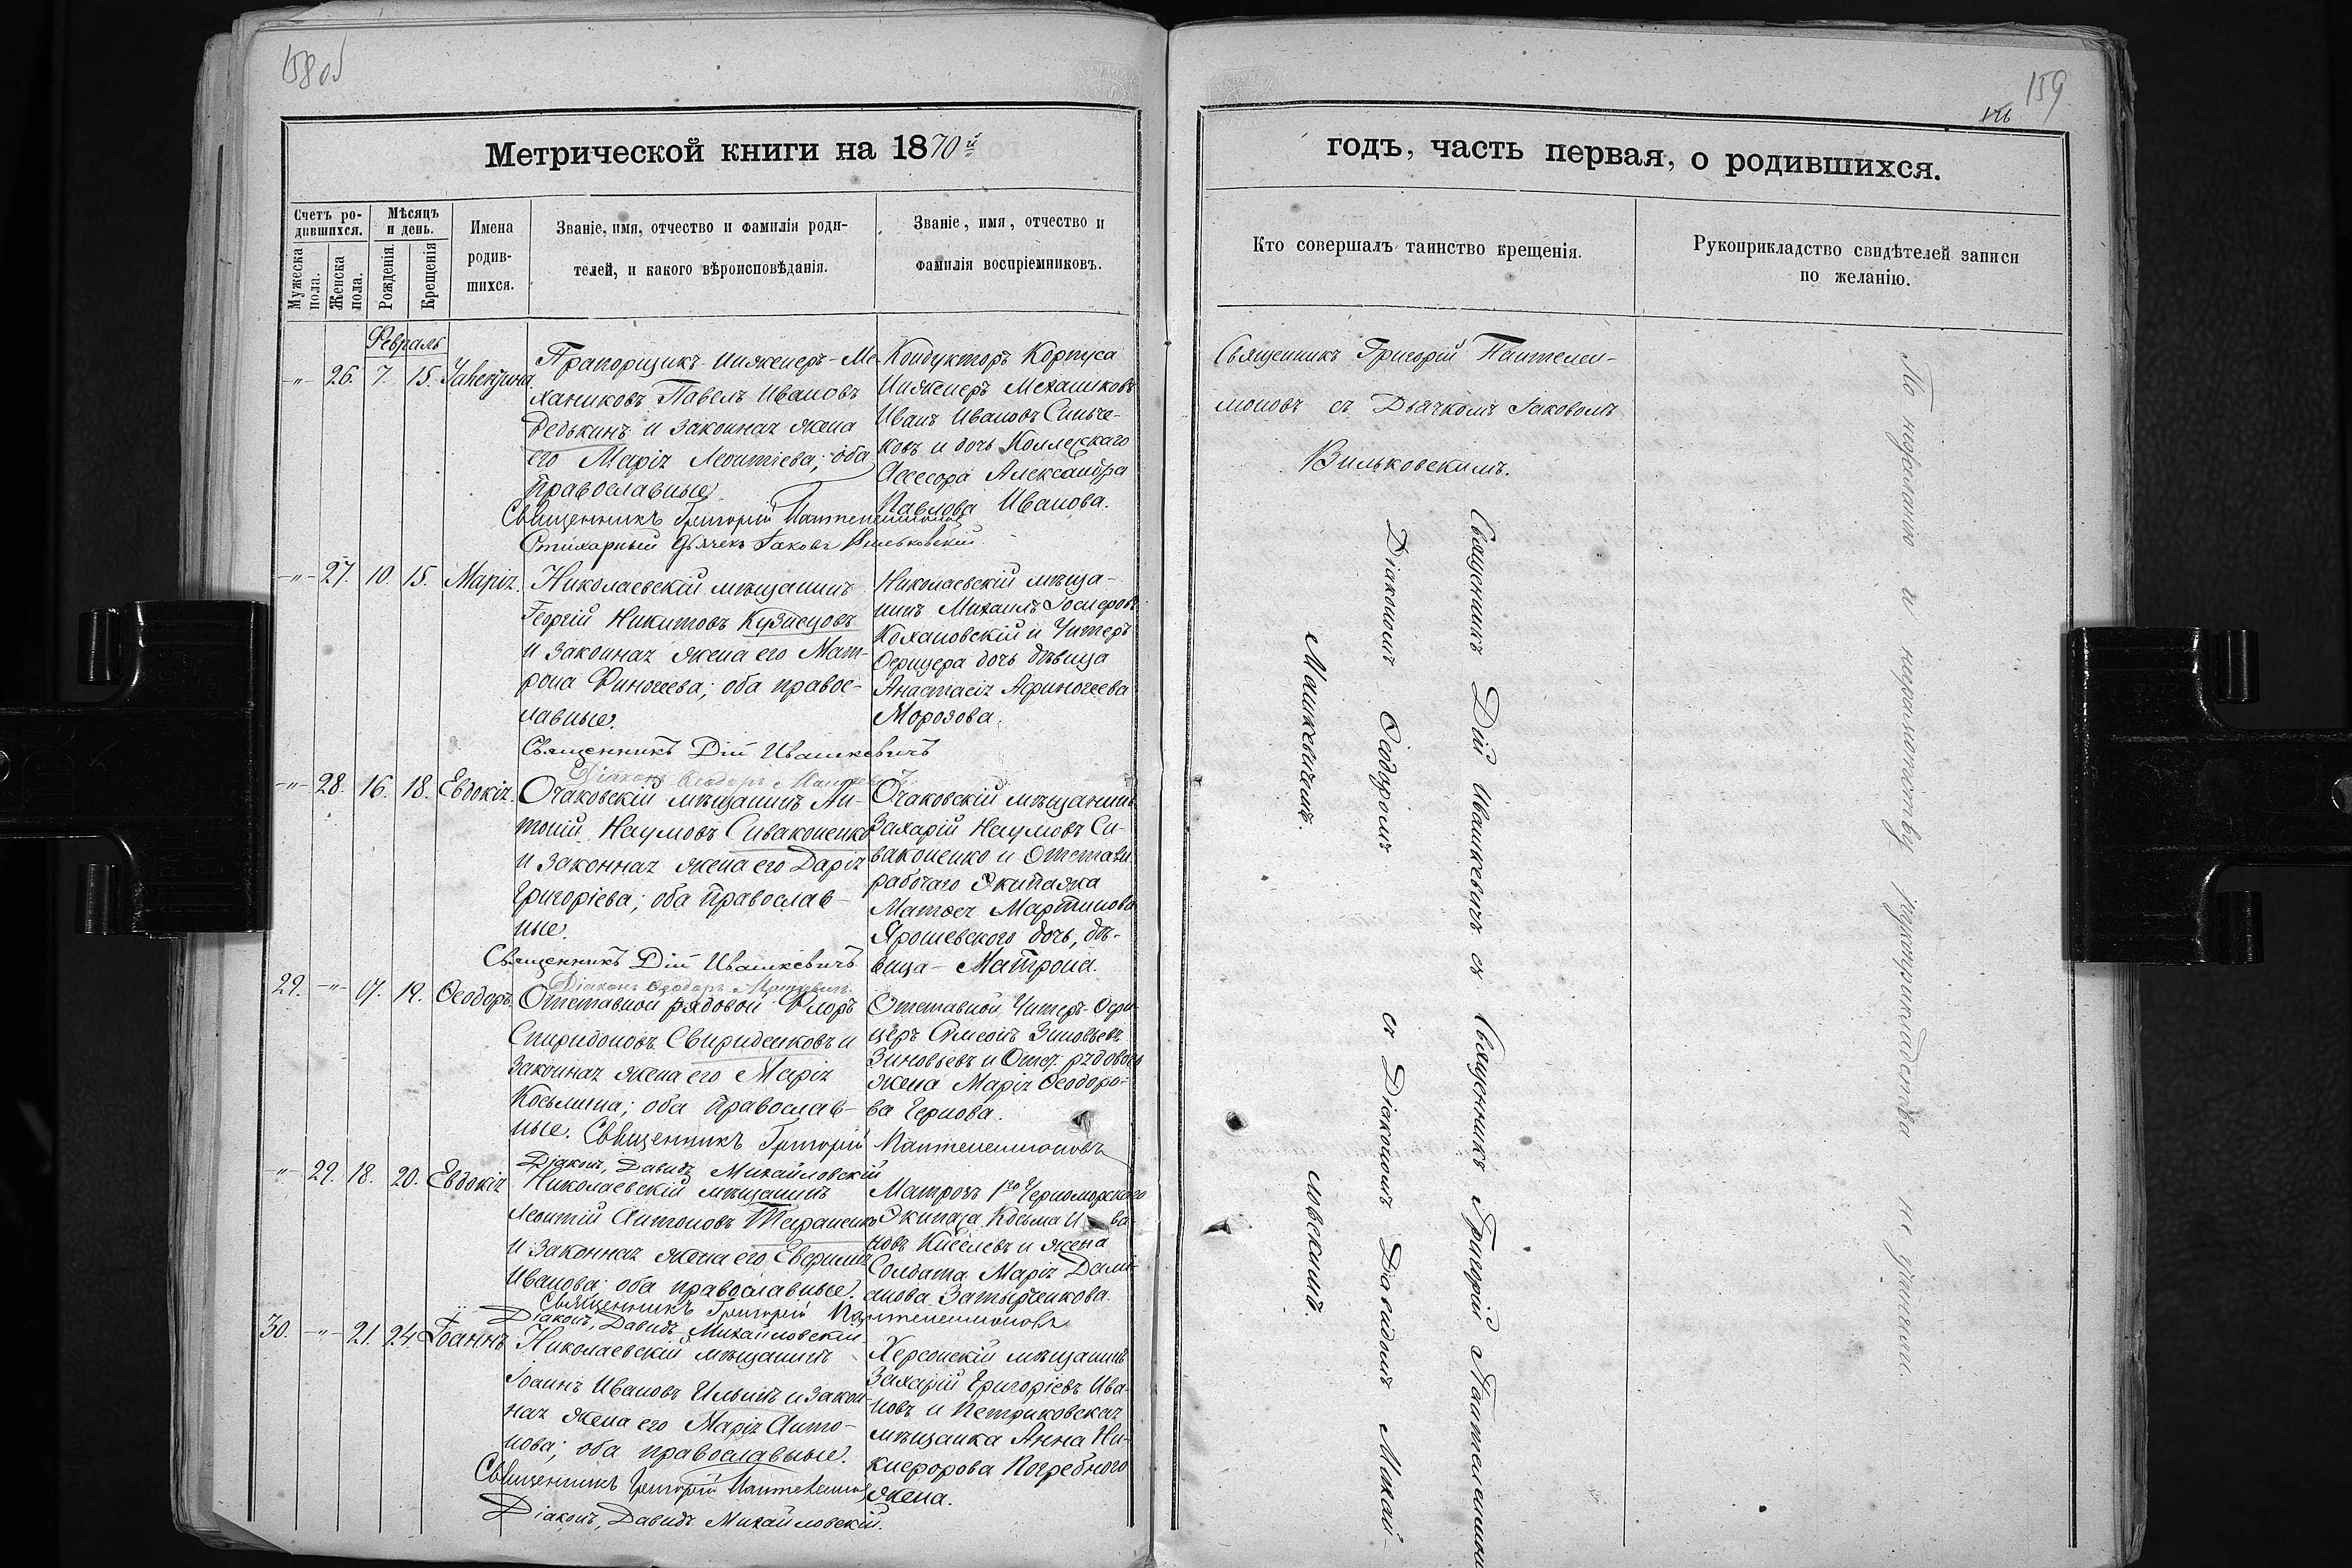 158 об
Метрической книги на 1870й
Счетъ родившихся.
Мужеска пола.
Женска пола.
Мѣсяцъ и день.
Рожденія.
Крещенія
Имена родившихся.
Званіе, имя, отчество и фамилія роди-
телей, и какого вѣроисповѣданія.
Званіе, имя, отчество и
фамилія воспріемниковъ.
Февраль
-"- 26. 7. 15.
Прапорщикъ Инженеръ-Ме-
ханиковъ Павелъ Ивановъ
Редькинъ и законная жена
его Марія Леонтіева; оба
православные.
Священникъ Григорій Пантелеимоновъ
Стихарный дьячекъ Іаковъ Вильковскій
Кондукторъ Корпуса
Инженеръ Механиковъ
Иванъ Ивановъ
ковъ и дочь Коллежскаго
Ассесора Александра
Павлова Иванова.
-"- 27. 10. 15. Марія.
Николаевскій мѣщанинъ
Георгій Никитовъ Кузнецовъ
и законная жена его Мат-
рона Финогеева; оба правос-
лавные.
Священникъ Дій Ивашкевичъ
Діаконъ Ѳеодоръ Машкевичъ
Николаевскій мѣща-
нинъ Михаилъ
Кохановскій и Унтеръ
Офицера дочь дѣвица
Анастасія Афиногеева
Морозова.
-"- 28. 16. 18. Евдокія.
Очаковскій мѣщанинъ Ан-
тоній Наумовъ Сиваконенко
и законная жена его Дарія
Григоріева; оба православ-
ные.
Священникъ Дій Ивашкевичъ
Діаконъ Ѳеодоръ Машкевичъ.
Очаковскій мѣщанинъ
Захарій Наумовъ Си-
ваконенко и Отставн.
рабочаго Экипажа
Матѳея Мартинова
Ярошевского дочь, дѣ-
вица - Матрона.
29. -"- 17. 19. Ѳеодоръ.
Отставной рядовой Флоръ
Спиридоновъ Свириденковъ и
законная жена его Марія
Косьмина; оба православ-
ные. Священникъ Григорій Пантелеимоновъ
Діаконъ, Давидъ Михайловскій
Отставной Унтеръ-Офи-
церъ Симеонъ Зиновьевъ
Зиновьевъ и Отст. рядового
жена Марія Ѳеодоро-
ва Чернова.
-"- 29. 18. 20. Евдокія
Николаевскій мѣщанинъ
Леонтій Антоновъ Стефаненко
и законная жена его Евфимія
Иванова; оба православные.
Священникъ Григорій Пантелеимоновъ
Діаконъ, Давидъ Михайловскій
Матрозъ 1го Черноморского
Экипажа Косьма Ива-
новъ Киселевъ и жена
Солдата Марія Дамі-
анова
30. -"- 21. 24. Іоаннъ
Николаевскій мѣщанинъ
Іоаннъ Ивановъ Ильинъ и закон-
ная жена его Марія Анто-
нова; оба православные.
Священникъ Григорій Пантелеимоновъ
Діаконъ, Давидъ Михайловскій.
Херсонскій мѣщанинъ
Захарій Григоріевъ Ива-
новъ и Петриковская
мѣщанка Анна Ни-
кифорова Погребного
жена.
159
годъ, часть первая, о родившихся.
Кто совершалъ таинство крещенія.
Рукоприкладство свидѣтелей записи
по желанію.
Священникъ Григорій Пантелеи-
моновъ съ Дьячкомъ Іаковомъ
Вильковскимъ.
Священникъ Дій Ивашкевичъ съ
Діакономъ Ѳеодоромъ
Машкевичемъ.
Священникъ Григорій Пантелеимонов
съ Діакономъ Давидомъ Михай-
ловскимъ.
По нежеланію и неграмотству рукоприкладства не учинили.